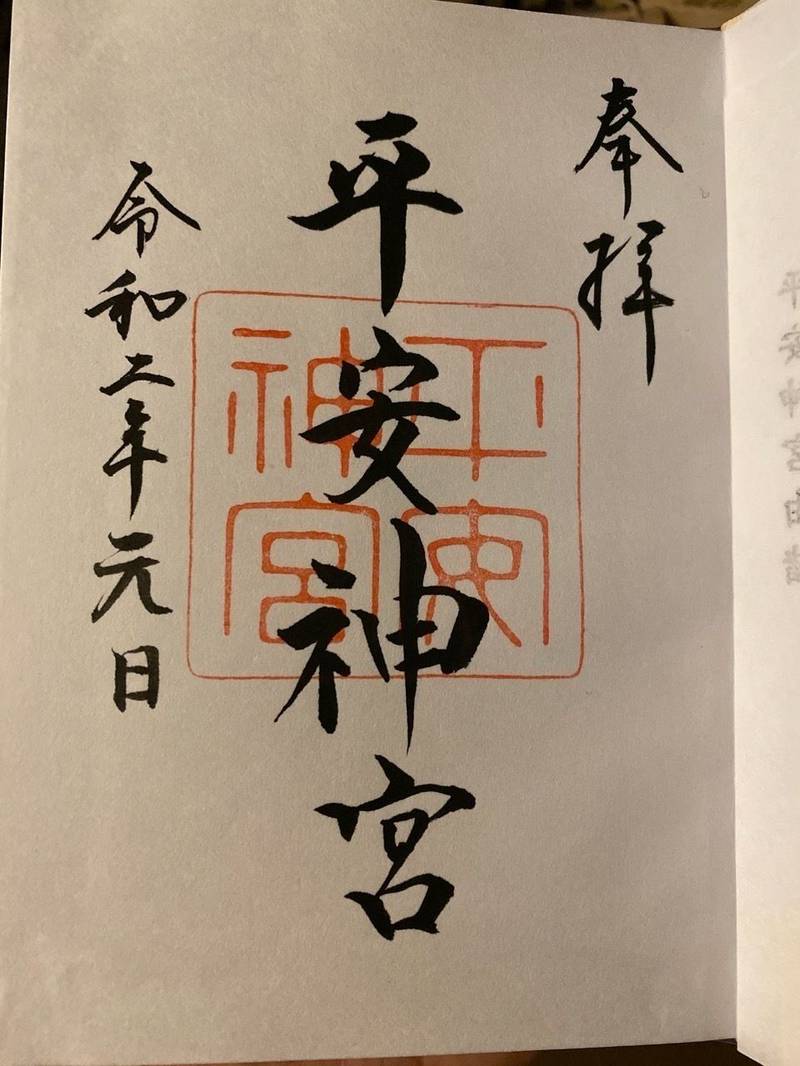 奉拝
平安神宮
令和二年元日
平安
神宮